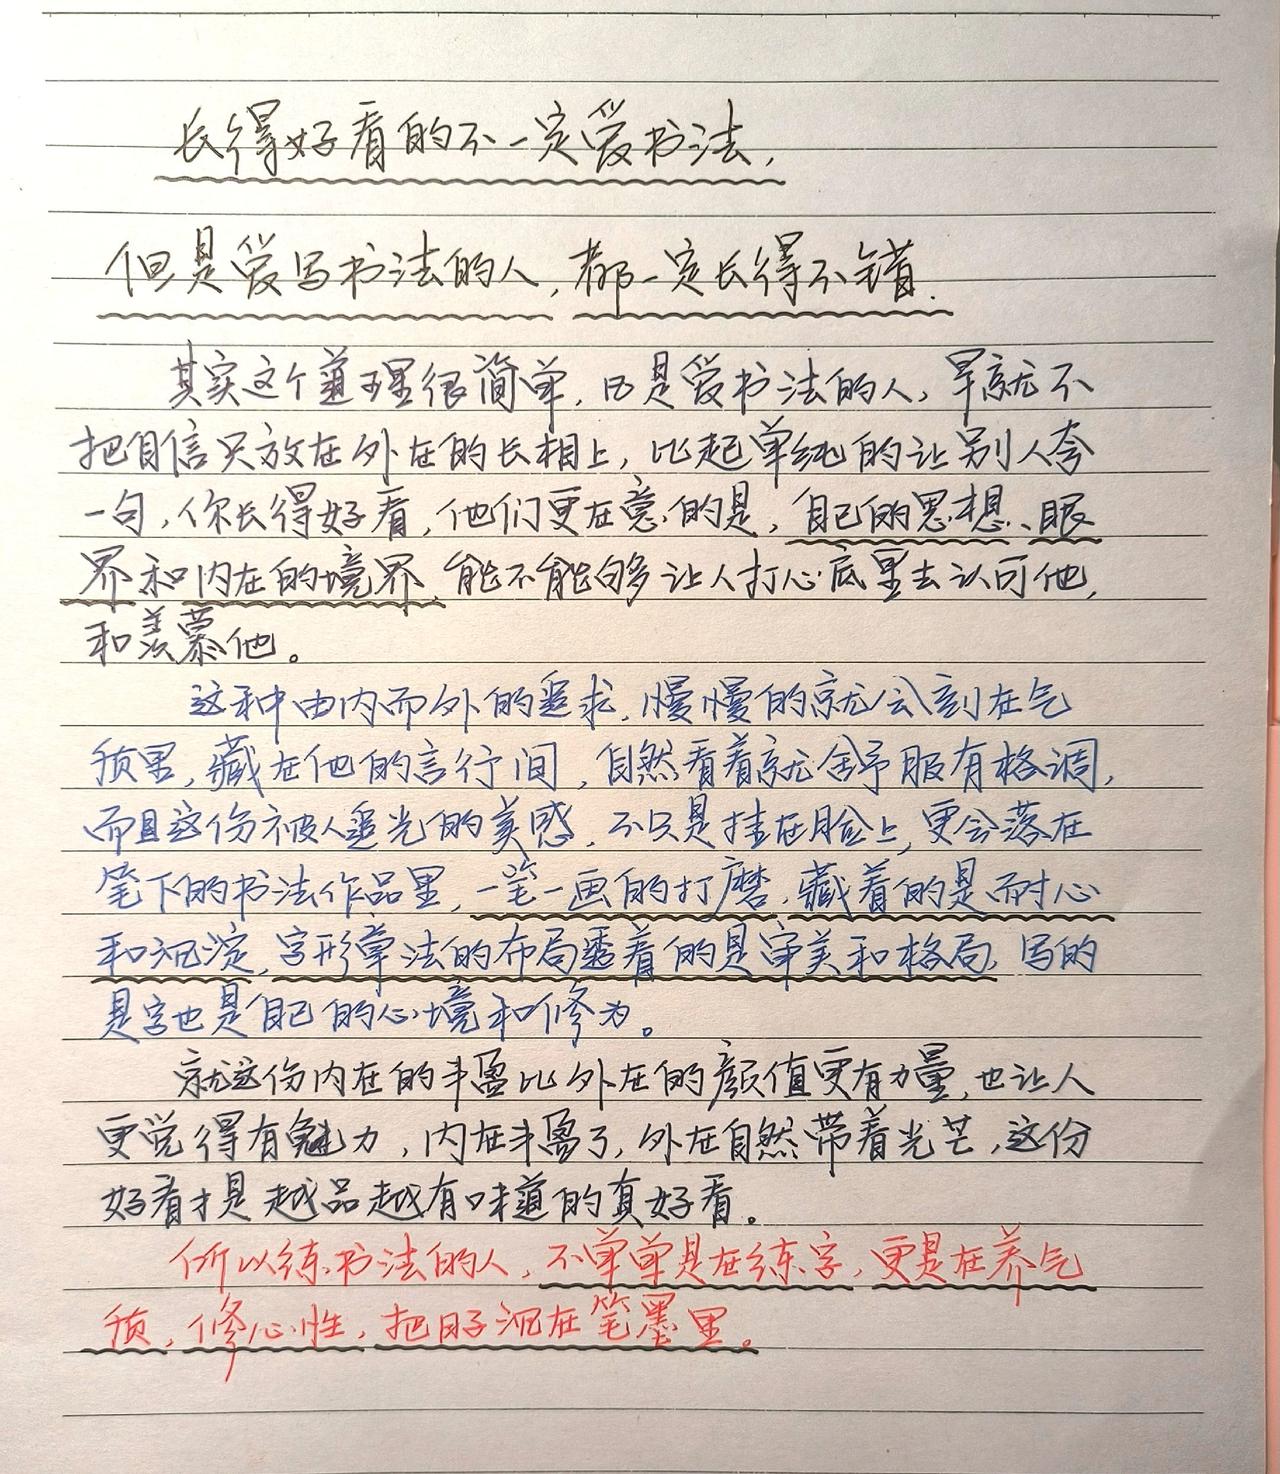 长得好看的不一定爱书法，
但是爱写书法的人，都一定长得不错．
其实这个道理很简单，凡是爱书法的人，早就不
把自信只放在外在的长相上，比起单纯的让别人夸
一句，你长得好看，他们更在意的是，自己的思想、眼
界和内在的境界，能不能够多让人打心底里去认可他，
和羡慕他。
这种由内而外的追求，慢慢的就会刻在气
质里，藏在他的言行间，自然看着就舒服有格调，
而且这份被人追光的美感，不只是挂在脸上，更会落在
笔下的书法作品里，一笔一画的打磨，藏着的是耐心
和沉淀，字形章法的布局透着的是审美和格局，写的
是字也是自己的心境和修为。
就这份内在的丰盈比外在的颜值更有力量，也让人
更觉得有魅力，内在丰盈了，外在自然带着光芒，这份
好看才是越品越有味道的真好看。
所以练书法的人，不单单是在练字，更是在养气
质，修心性，把日子沉在笔墨里。